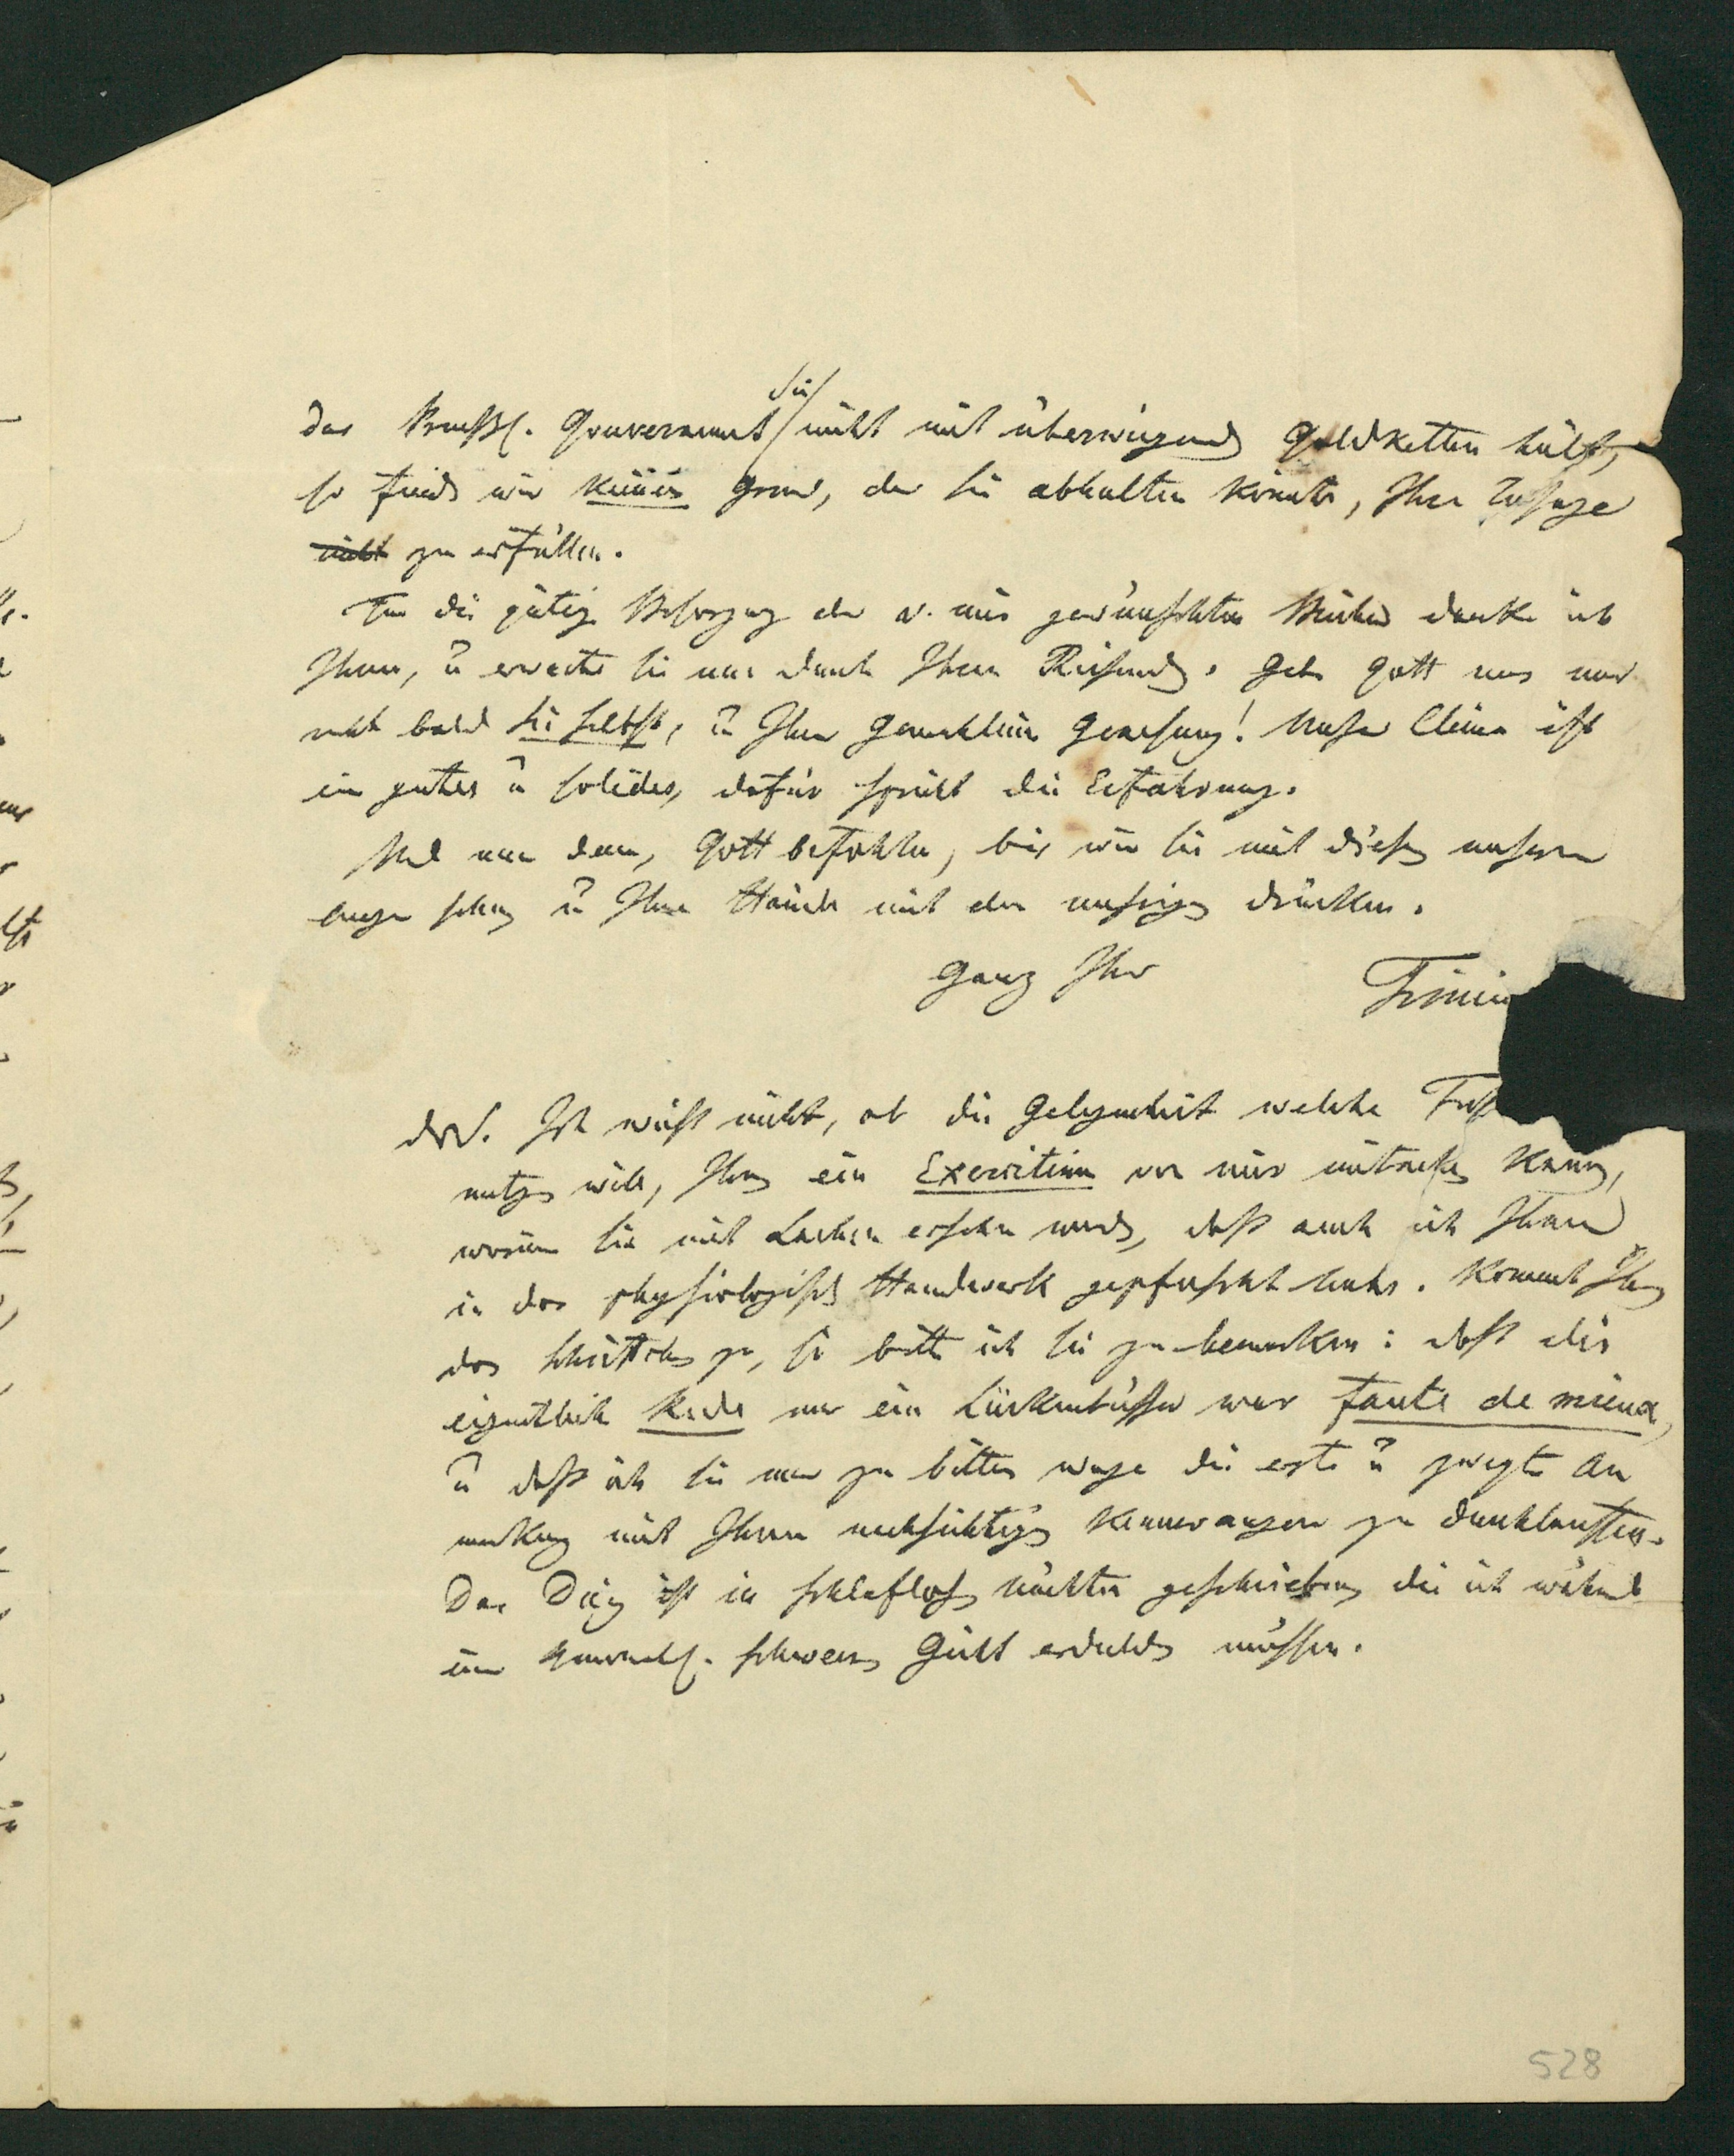 das Preußl. Gouvernement Sie nicht mit überwiegend Goldketten hält,
so finde wir keinen Grund, der Sie abhalten könnte, Ihre Zusage
nicht zu erfüllen.
Für die gütige Besorgung der v. mir gewünschten Bücher danke ich
Ihnen, u erwarte sie nun durch Ihren Reisend. Gebe Gott uns nur
recht bald Sie selbst, u Ihrer Gemahlin Genesung! Unser Clima ist
ein gutes u solides, dafür spricht die Erfahrung.
Und nun denn, Gott befohlen, bis wir Sie mit diesen unseren
Augen sehen u Ihre Hände mit den unsrigen drücken.
Ganz Ihr
Ich weiß nicht, ob die Gelegenheit welche
nutzen will, Ihnen ein Exercitium von mir mitnehmen kann,
worin Sie mit Lachen ersehen werden, daß auch ich Ihnen
in das physiologische Handwerk gepfuscht habe. Kommt Ihnen
das Schriftchen zu, so bitte ich Sie zu bemerken: daß die
eigentliche Rede nur ein Lückenbüßer war faute de mieux,
u daß ich Sie nur zu bitten wage die erste u zweyte An
merkung mit Ihren nachsichtigen Kenneraugen zu durchlaufen.
Das Ding ist in schlaflosen Nächten geschrieben, die ich während
einer schweren Gicht erdulden müssen.
528